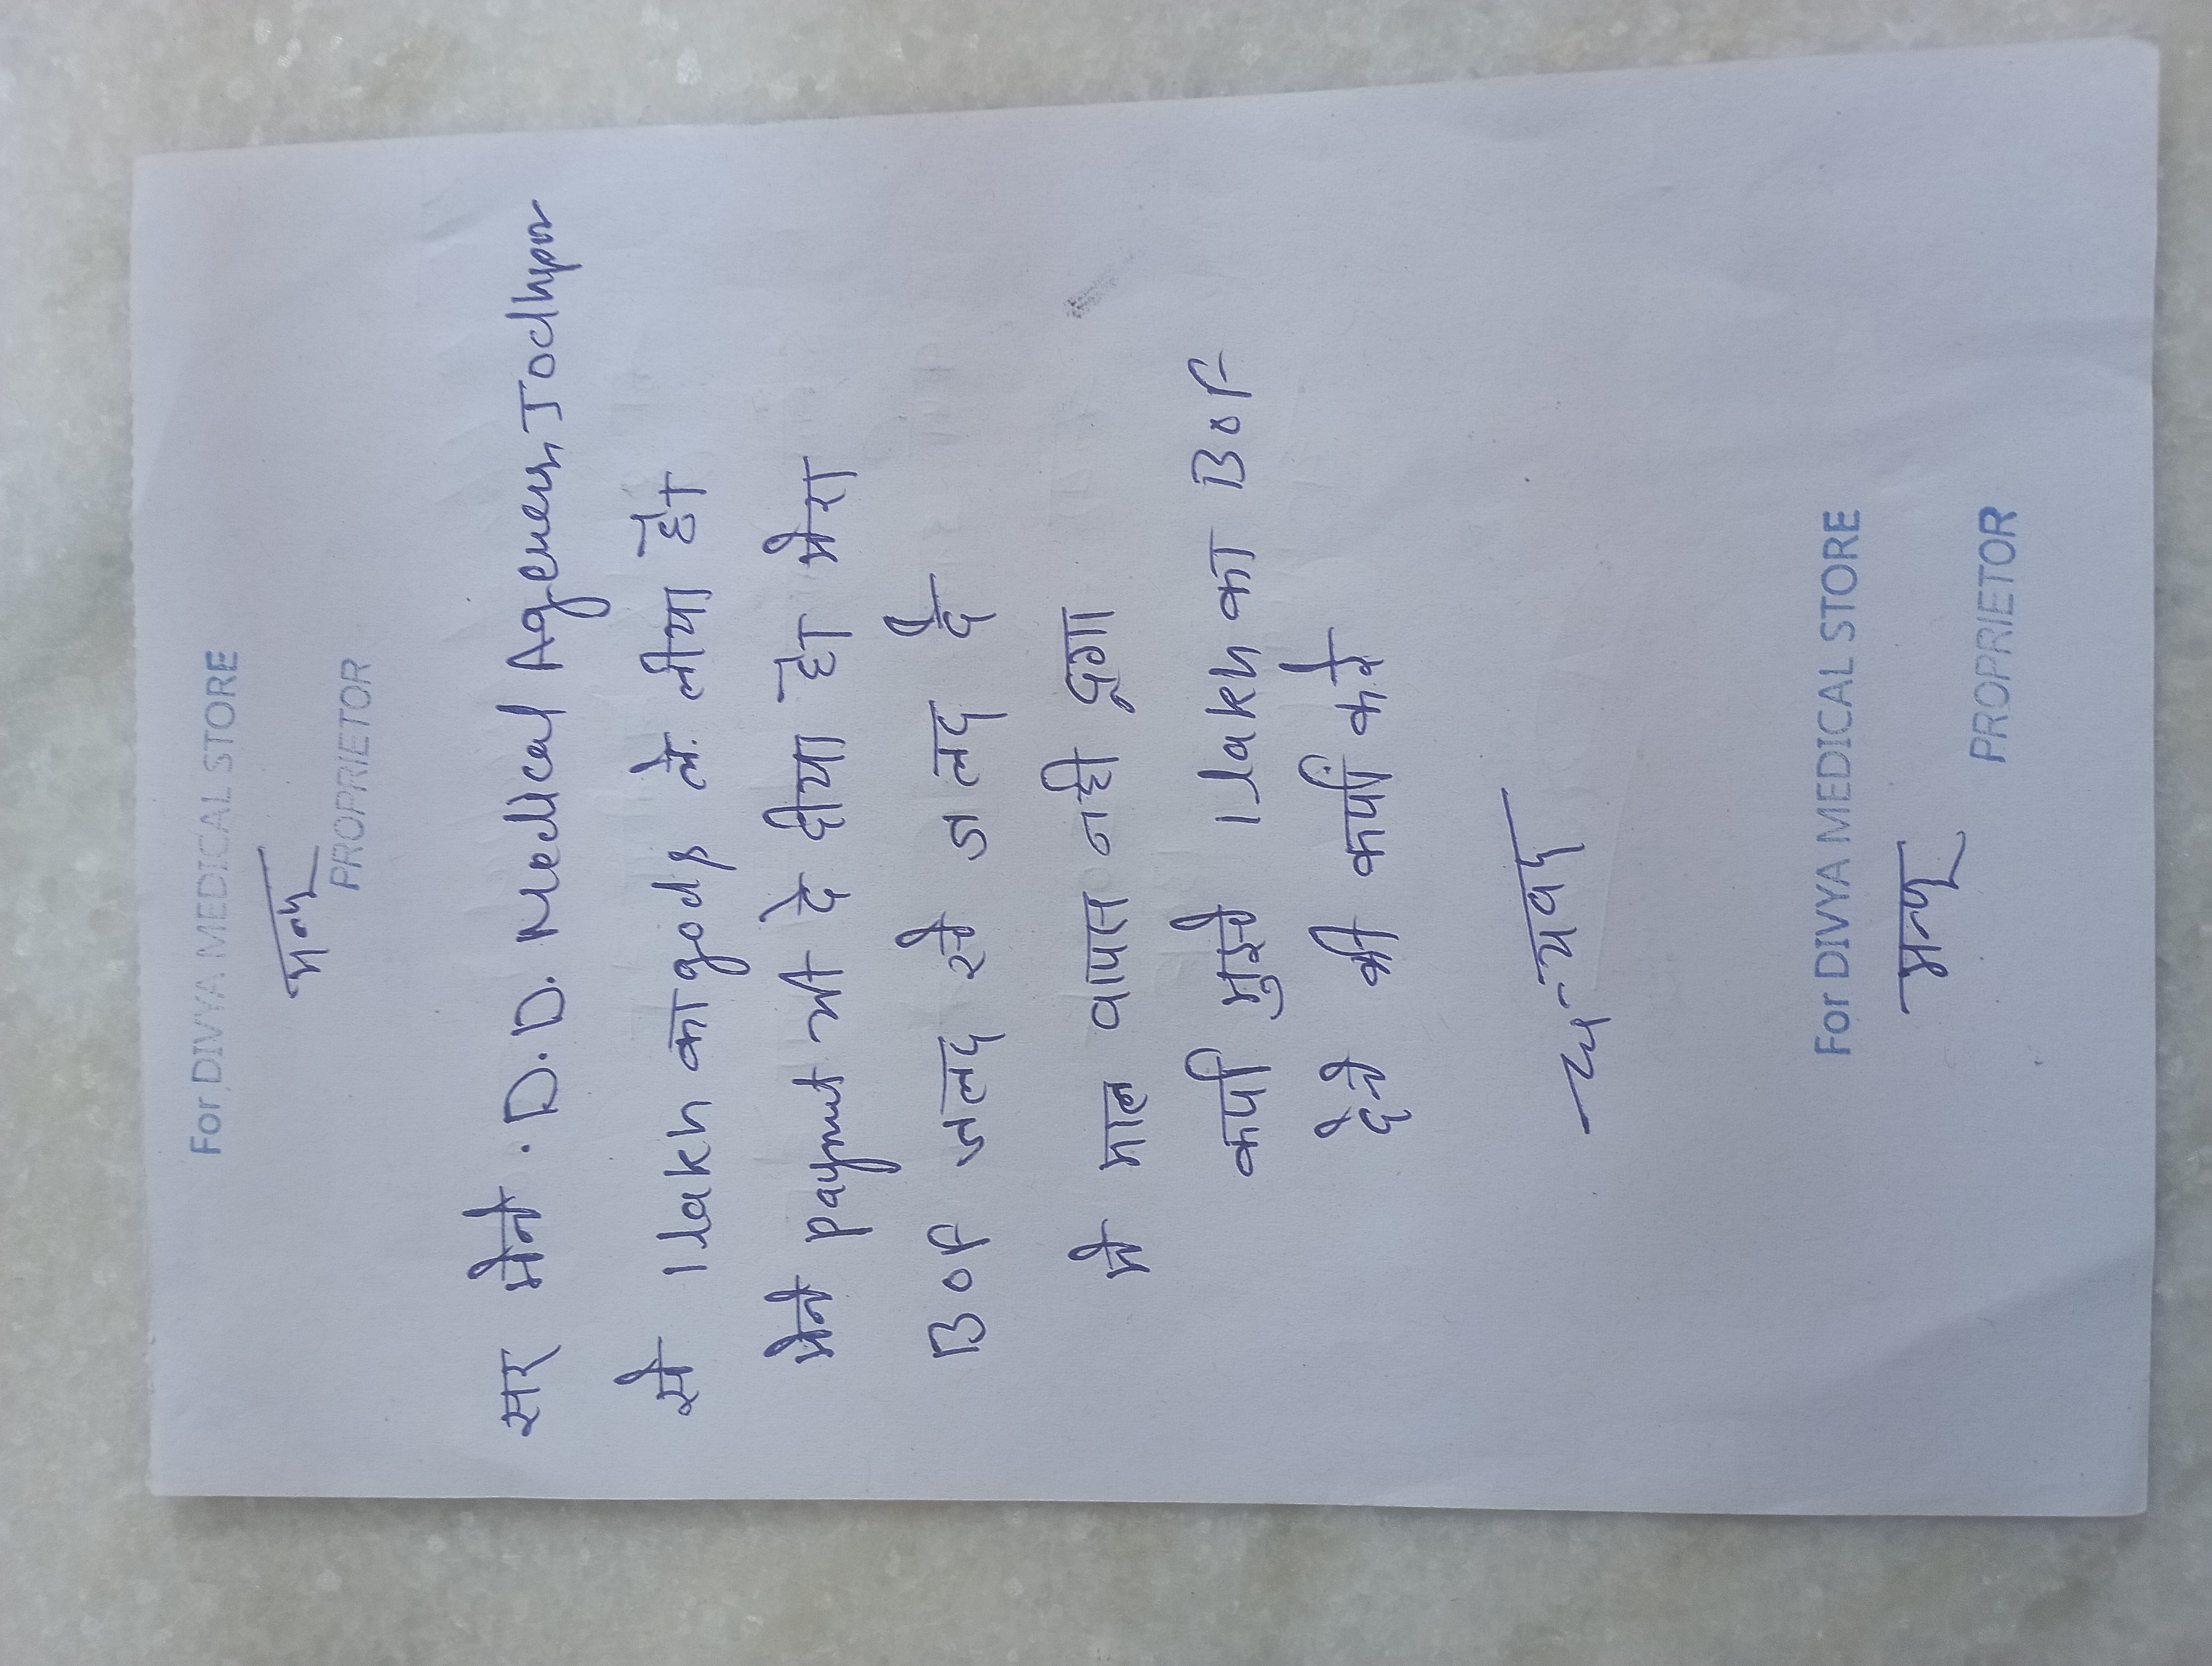 For DIVYA MEDICAL STORE
PROPRIETOR
सर मैने D.D. Medical Agencys, Jodhpur
से 1 lakh का gods ले. लीया है
मैने paymnt भी दे दीया है मेरा
BOF जलद से जलद दे
मे माल वापस नही दूगा
कर्पा मुझे 1 lakh का BOF
देने की कर्पा करे
धन्यवाद
For DIVYA MEDICAL STORE
PROPRIETOR